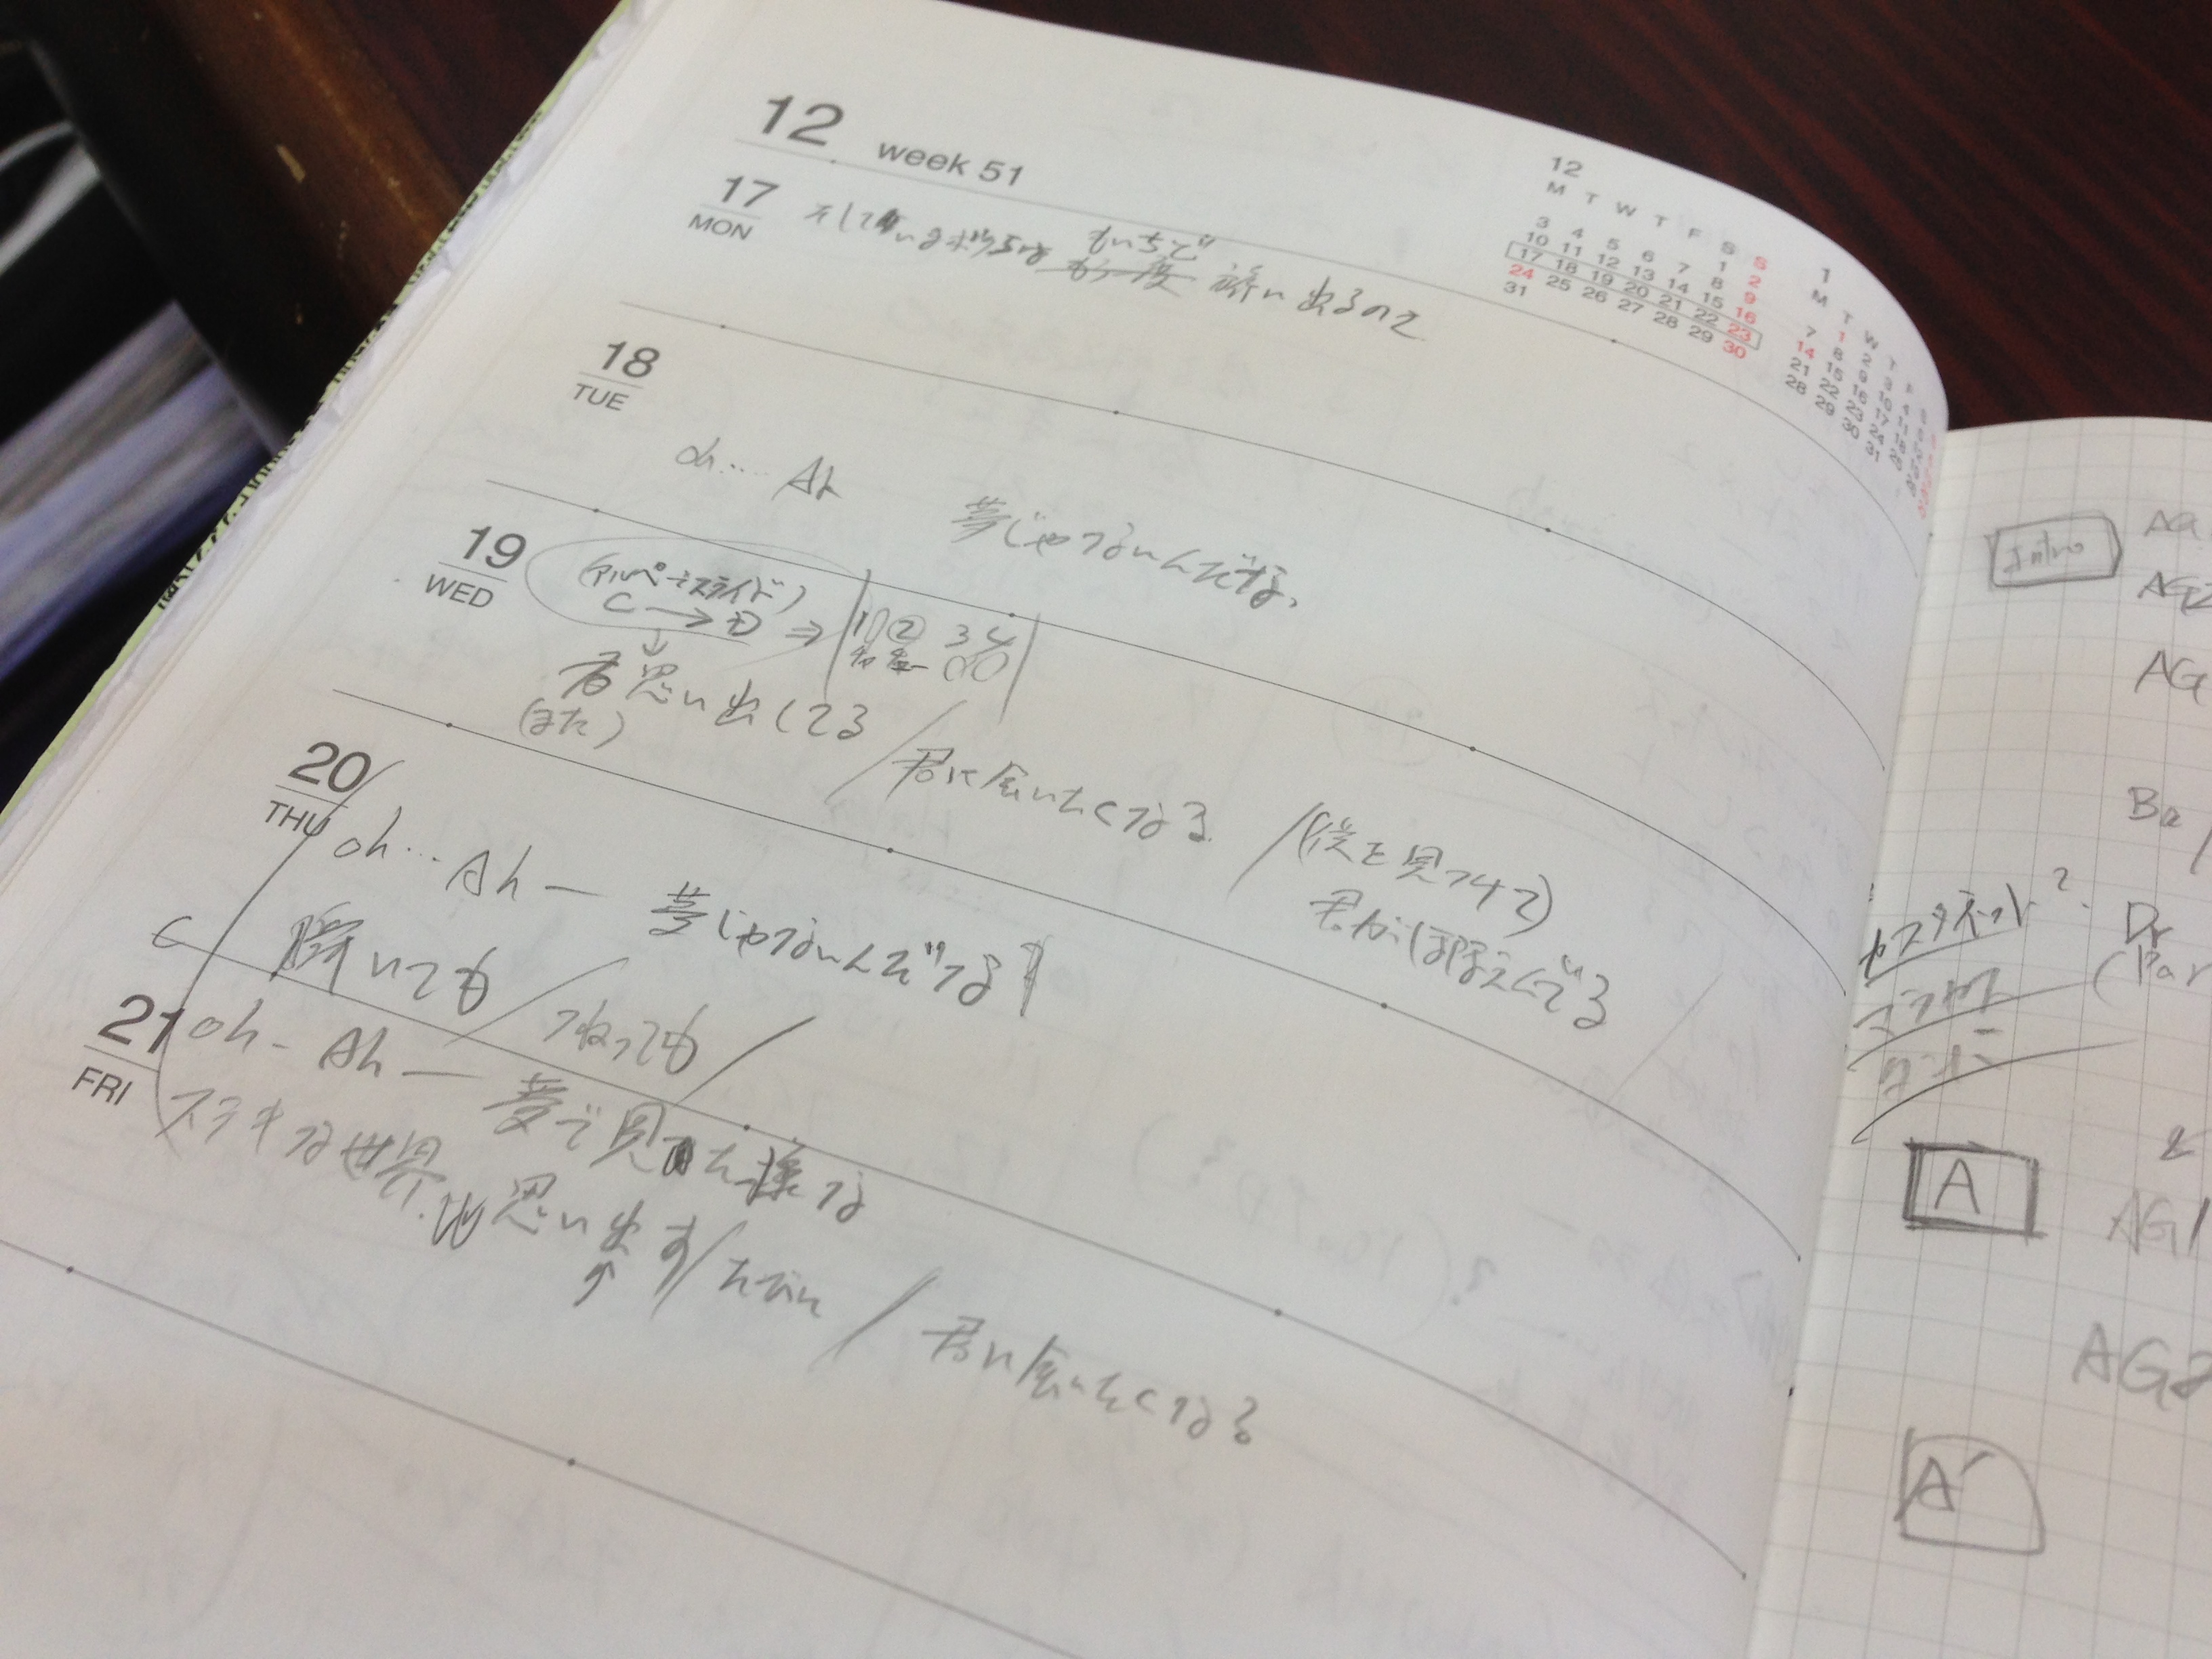 12 week 51
17
MON
もいちど
そして いまボクらは もう一度 旅に出るのさ
18
TUE
oh.... Ah 夢じゃないんだな、
19
WED
(アルペースライド)
C → D ⇒ 1 ② 3 4
君思い出してる / 君に会いたくなる / (僕を見つけて)
(また)
君がほほえんでる
20
THU
oh... Ah — 夢じゃないんだな
C
瞬いても / つねっても /
21
FRI
oh - Ah — 夢で見た様な
ステキな世界 思い出す / たぶん / 君に会いたくなる
12
M T W T F S S
1 2
3 4 5 6 7 8 9
10 11 12 13 14 15 16
17 18 19 20 21 22 23
24 25 26 27 28 29 30
31
1
M T W T F S
7 8 9 10 11
14 15 16 17 18
21 22 23 24 25
28 29 30 31
Intro
AG2
AG
Ba
カスタネット?
Dr
(Par
A
&
AG1
AG2
A'